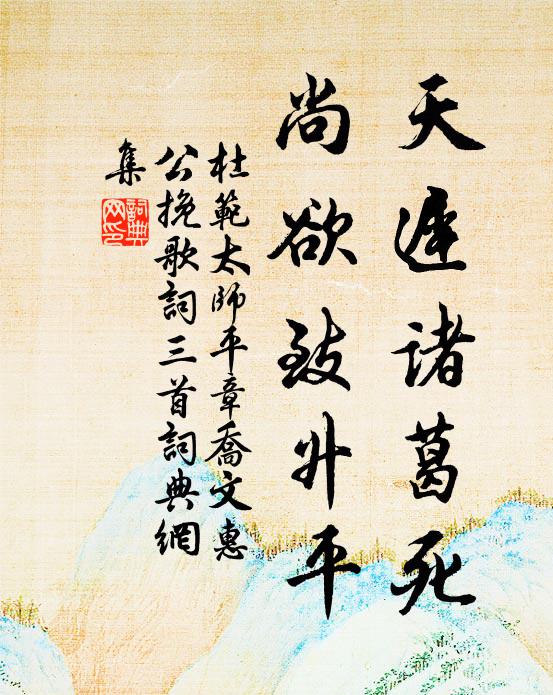 天遲諸葛死
尚欲致升平
杜範太師平章喬文惠
公挽歌詞三首詞典網
集
詞典網印